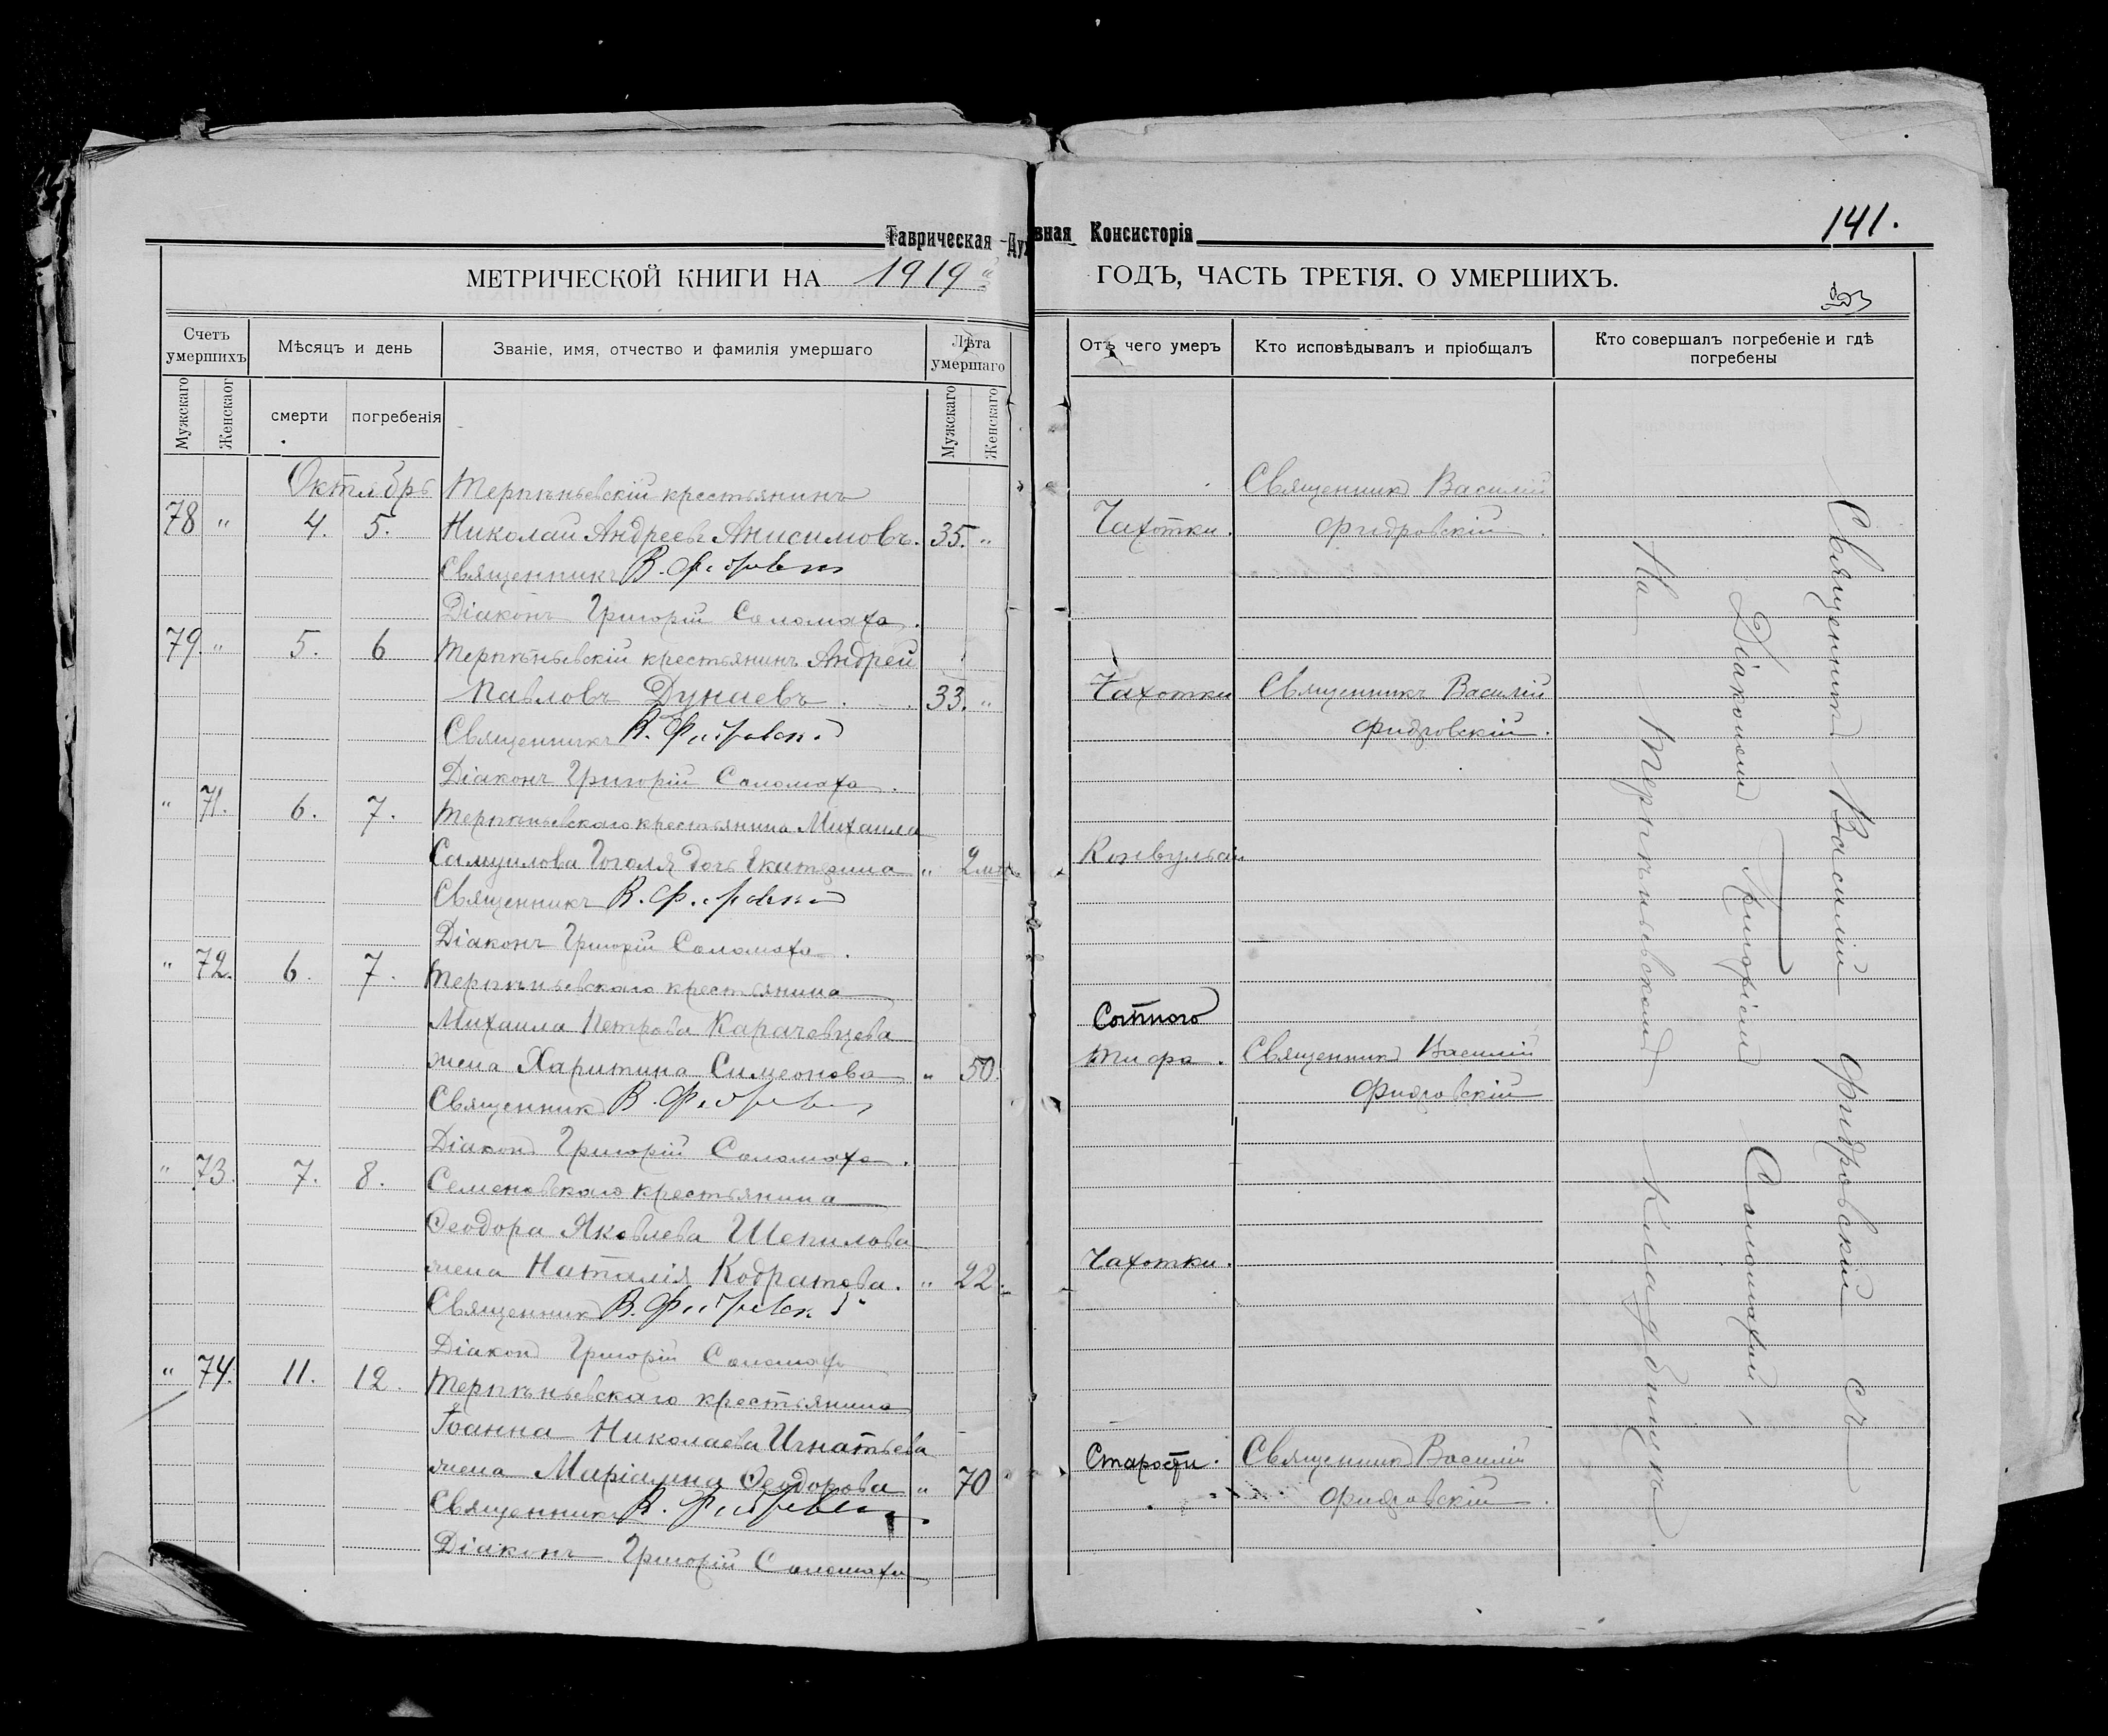 Таврическая Духовная Консисторія
141.
МЕТРИЧЕСКОЙ КНИГИ НА 1919й ГОДЪ, ЧАСТЬ ТРЕТІЯ, О УМЕРШИХЪ.
Счетъ умершихъ
Мѣсяцъ и день
Званіе, имя, отчество и фамилія умершаго
Лѣта умершаго
Отъ чего умеръ
Кто исповѣдывалъ и пріобщалъ
Кто совершалъ погребеніе и гдѣ погребены
Мужскаго
Женскаог
смерти
погребенія
Мужскаго
Женскаго
Октябрь Терпѣньевскій крестьянинъ Священникъ Василій
78 " 4. 5. Николай Андреевъ Анисимовъ. 35. " Чахотки. Фидровскій.
Священникъ В. Фидровскій
Діаконъ Григорій Соломаха.
79. " 5. 6 Терпѣньевскій крестьянинъ Андрей
Павловъ Дунаевъ. 33. " Чахотки Священникъ Василій
Священникъ В. Фидровскій Фидровскій.
Діаконъ Григорій Соломаха.
" 71. 6. 7. Терпѣньевскаго крестьянина Михаила
Самуилова Гоголя дочь Екатерина " 2 Конвульсіи
Священникъ В. Фидровскій
Діаконъ Григорій Соломаха.
" 72. 6. 7. Терпѣньевскаго крестьянина
Михаила Петрова Карачевцева
жена Харитина Симеонова " 50. тифа. Священникъ Василій
Священникъ В. Фидровскій Фидровскій
Діаконъ Григорій Соломаха.
" 73. 7. 8. Семеновскаго крестьянина
Ѳеодора Яковлева Шепилова
жена Наталія Кодратова. " 22. Чахотки.
Священникъ В. Фидровскій
Діаконъ Григорій Соломаха
" 74. 11. 12. Терпѣньевскаго крестьянина
Іоанна Николаева Игнатьева
жена Маріамна Ѳеодорова " 70 Старости. Священникъ Василій
Священникъ В. Фидровскій Фидровскій.
Діаконъ Григорій Соломаха
Священникъ Василій Фидровскій съ
Діакономъ Григоріемъ Соломахой
На Терпѣньевскомъ кладбищѣ.